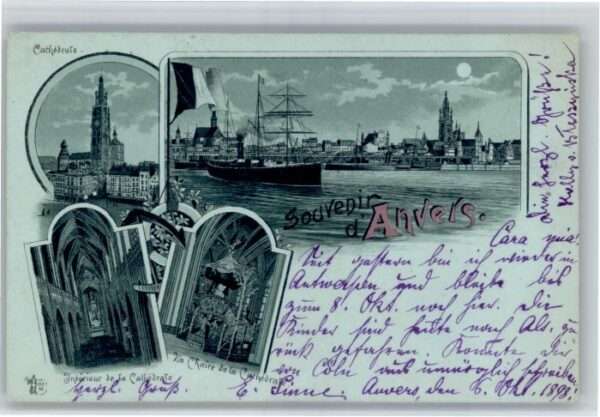 Cathédrale
Souvenir
d'Anvers.
Cara mia!
Seit gestern bin ich wieder in
Antwerpen und bleibe bis
zum 8. Okt. noch hier. Die
Kinder sind heute nach Alt. zu
rück gefahren. Konnte dir
von Cöln aus unmöglich schreiben
Intérieur de la Cathédrale
La Chaire de la Cathédrale
Herzl. Gruß. E. Anvers, den 6. Okt. 1898.
Grüße!
Kelly v.